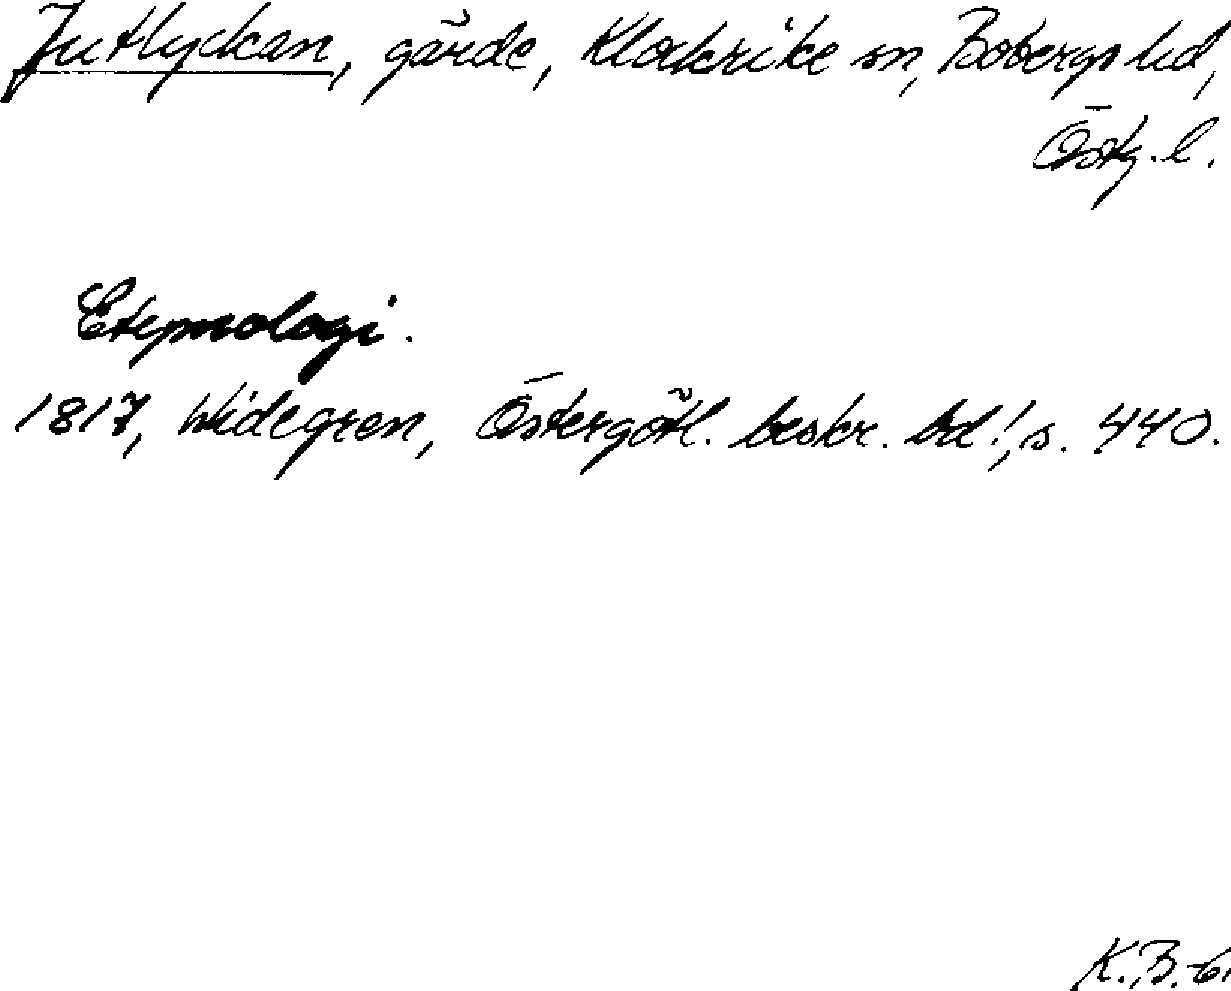 Jutlycken, gärde, Klockrike sn, Bobergs hd,
Östg. l.
Etymologi.
1817, Widegren, Östergötl. beskr. bd 1, s. 440.
K.B.-61